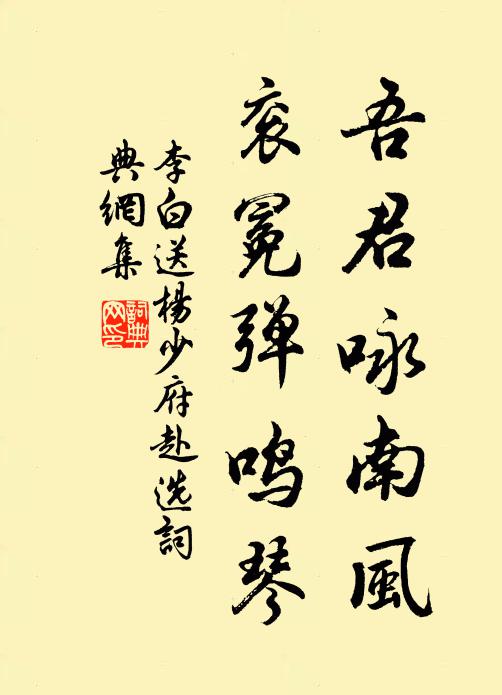 吾君咏南風
衮冕弹鸣琴
李白送楊少府赴选詞
典網集
詞典
网印